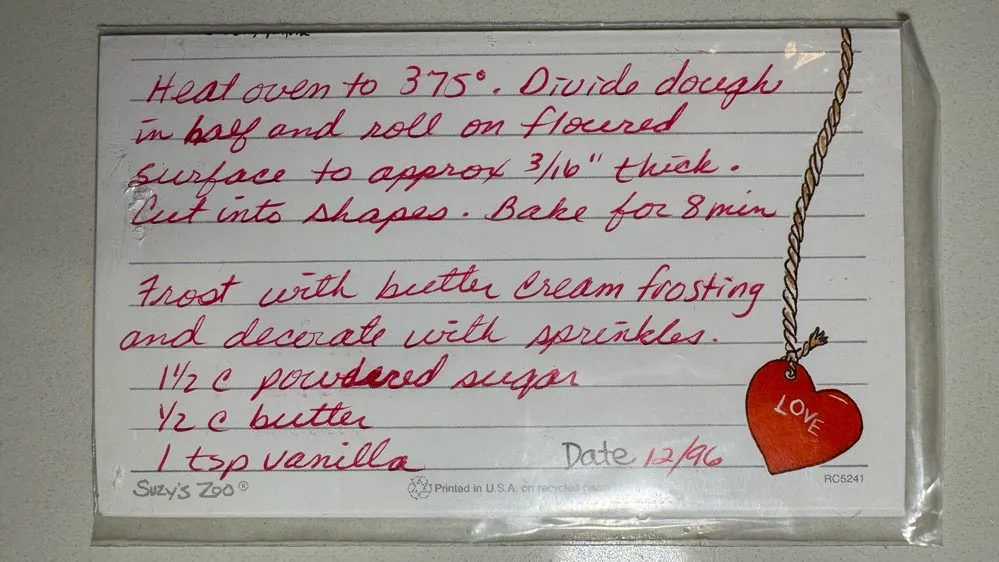 Heat oven to 375°. Divide dough
in half and roll on floured
surface to approx 3/16" thick.
Cut into shapes. Bake for 8 min
Frost with butter cream frosting
and decorate with sprinkles.
1 1/2 c powdered sugar
1/2 c butter
1 tsp vanilla
Date 12/96
LOVE
Suzy's Zoo®
Printed in U.S.A. on recycled paper
RC5241